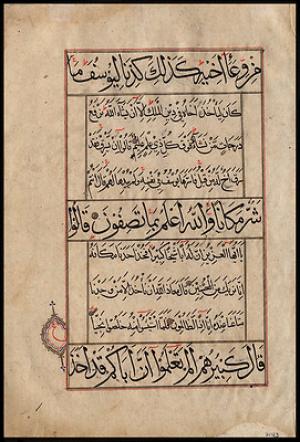 من وعاء اخيه كذلك كدنا ليوسف ما
كان ليأخذ اخاه في دين الملك الا ان يشاء الله نرفع
درجات من نشاء وفوق كل ذي علم عليم قالوا ان يسرق فقد
سرق اخ له من قبل فاسرها يوسف في نفسه ولم يبدها لهم قال انتم
شر مكانا والله اعلم بما تصفون قالوا
يا ايها العزيز ان له ابا شيخا كبيرا فخذ احدنا مكانه
انا نريك من المحسنين قال معاذ الله ان نأخذ الا من وجدنا
متاعنا عنده انا اذا لظالمون فلما استيأسوا منه خلصوا نجيا
قال كبيرهم الم تعلموا ان اباكم قد اخذ